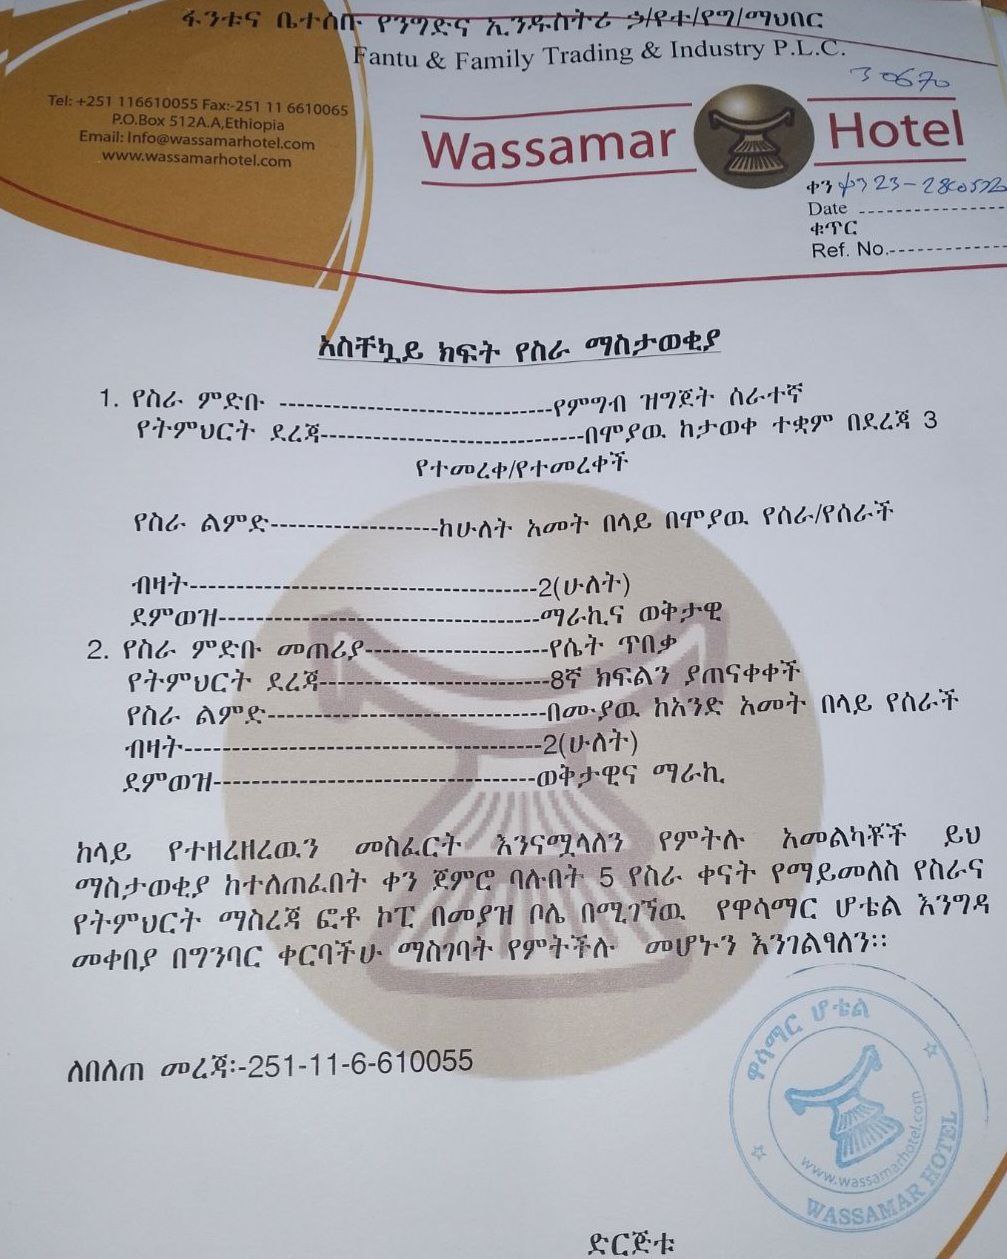 ፋንቱና ቤተሰቡ የንግድና ኢንዱስትሪ ኃ/የተ/የግ/ማህበር
Fantu & Family Trading & Industry P.L.C.
30670
Tel: +251 116610055 Fax:-251 11 6610065
P.O.Box 512A.A,Ethiopia
Email: Info@wassamarhotel.com
www.wassamarhotel.com
Wassamar Hotel
ቀን
Date
ቁጥር
Ref. No.
አስቸኳይ ክፍት የስራ ማስታወቂያ
1. የስራ ምድቡ ------------------------------የምግብ ዝግጀት ሰራተኛ
የትምህርት ደረጃ------------------------------በሞያዉ ከታወቀ ተቋም በደረጃ 3
የተመረቀ/የተመረቀች
የስራ ልምድ-------------------ከሁለት አመት በላይ በሞያዉ የሰራ/የሰራች
ብዛት---------------------------------------2(ሁለት)
ደምወዝ------------------------------------ማራኪና ወቅታዊ
2. የስራ ምድቡ መጠሪያ---------------------የሴት ጥበቃ
የትምህርት ደረጃ--------------------------8ኛ ክፍልን ያጠናቀቀች
የስራ ልምድ-------------------------------በሙያዉ ከአንድ አመት በላይ የሰራች
ብዛት----------------------------------------2(ሁለት)
ደምወዝ------------------------------------ወቅታዊና ማራኪ
ከላይ የተዘረዘረዉን መስፈርት እንናሟላለን የምትሉ አመልካቾች ይህ
ማስታወቂያ ከተለጠፈበት ቀን ጀምሮ ባሉበት 5 የስራ ቀናት የማይመለስ የስራና
የትምህርት ማስረጃ ፎቶ ኮፒ በመያዝ ቦሌ በሚገኘዉ የዋሳማር ሆቴል እንግዳ
መቀበያ በግንባር ቀርባችሁ ማስገባት የምትችሉ መሆኑን እንገልፃለን፡፡
ለበለጠ መረጃ፡-251-11-6-610055
ዋሳማር ሆቴል
www.wassamarhotel.com
WASSAMAR HOTEL
ድርጅቱ